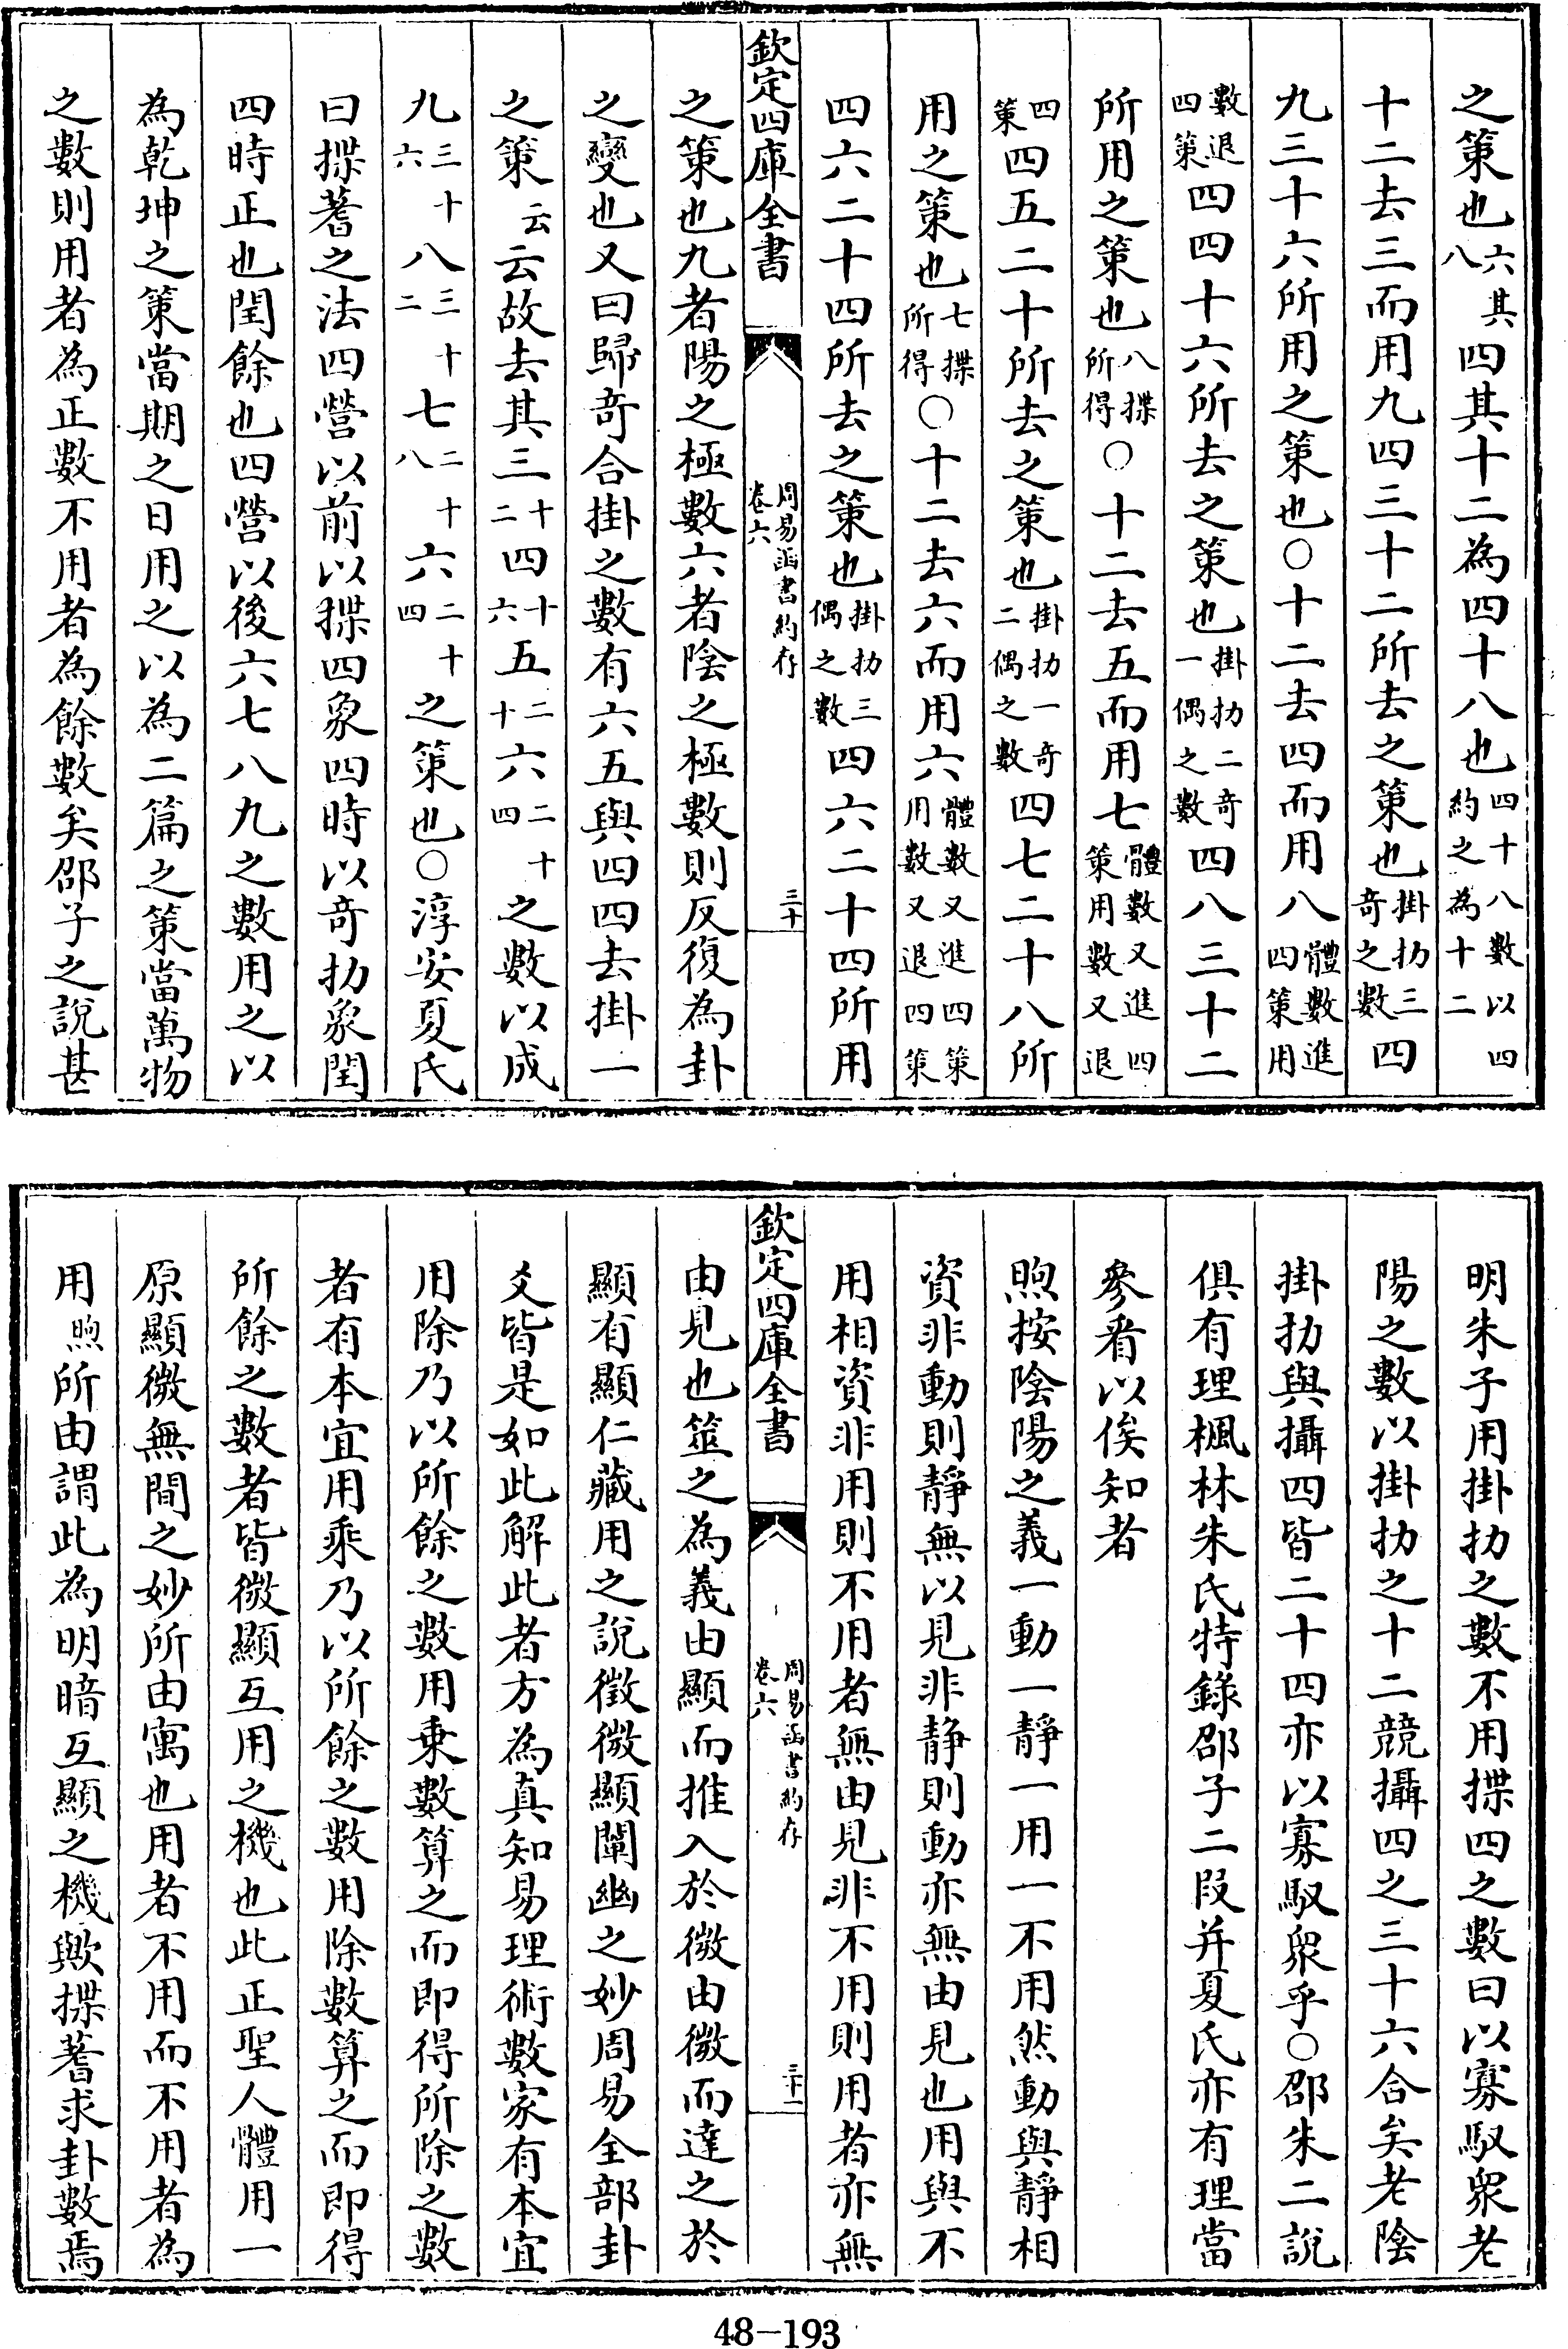 之策也六其八四其十二為四十八也四十八數以四約之為十二
十二去三而用九四三十二所去之策也掛扐三奇之數四
九三十六所用之策也○十二去四而用八體數進四策用
數退四策四四十六所去之策也掛扐二奇一偶之數四八三十二
所用之策也八揲所得○十二去五而用七體數又進四策用數又退
四策四五二十所去之策也掛扐一奇二偶之數四七二十八所
用之策也七揲所得○十二去六而用六體數又進四策用數又退四策
四六二十四所去之策也掛扐三偶之數四六二十四所用
欽定四庫全書 周易函書約存卷六 三十
之策也九者陽之極數六者陰之極數則反復為卦
之變也又曰歸奇合掛之數有六五與四四去掛一
之策云云故去其三十二四十六五二十六二十四之數以成
九三十六八三十二七二十八六二十四之策也○淳安夏氏
曰揲蓍之法四營以前以揲四象四時以奇扐象閏
四時正也閏餘也四營以後六七八九之數用之以
為乾坤之策當期之日用之以為二篇之策當萬物
之數則用者為正數不用者為餘數矣邵子之說甚
明朱子用掛扐之數不用揲四之數曰以寡馭衆老
陽之數以掛扐之十二競攝四之三十六合矣老陰
掛扐與攝四皆二十四亦以寡馭衆乎○邵朱二說
俱有理楓林朱氏特錄邵子二段并夏氏亦有理當
參看以俟知者
煦按陰陽之義一動一靜一用一不用然動與靜相
資非動則靜無以見非静則動亦無由見也用與不
用相資非用則不用者無由見非不用則用者亦無
欽定四庫全書 周易函書約存卷六 三十一
由見也筮之為義由顯而推入於微由微而達之於
顯有顯仁藏用之說徵微顯闡幽之妙周易全部卦
爻皆是如此解此者方為真知易理術數家有本宜
用除乃以所餘之數用乘數算之而即得所除之數
者有本宜用乘乃以所餘之數用除數算之而即得
所餘之數者皆微顯互用之機也此正聖人體用一
原顯微無間之妙所由寓也用者不用而不用者為
用煦所由謂此為明暗互顯之機歟揲蓍求卦數焉
48-193